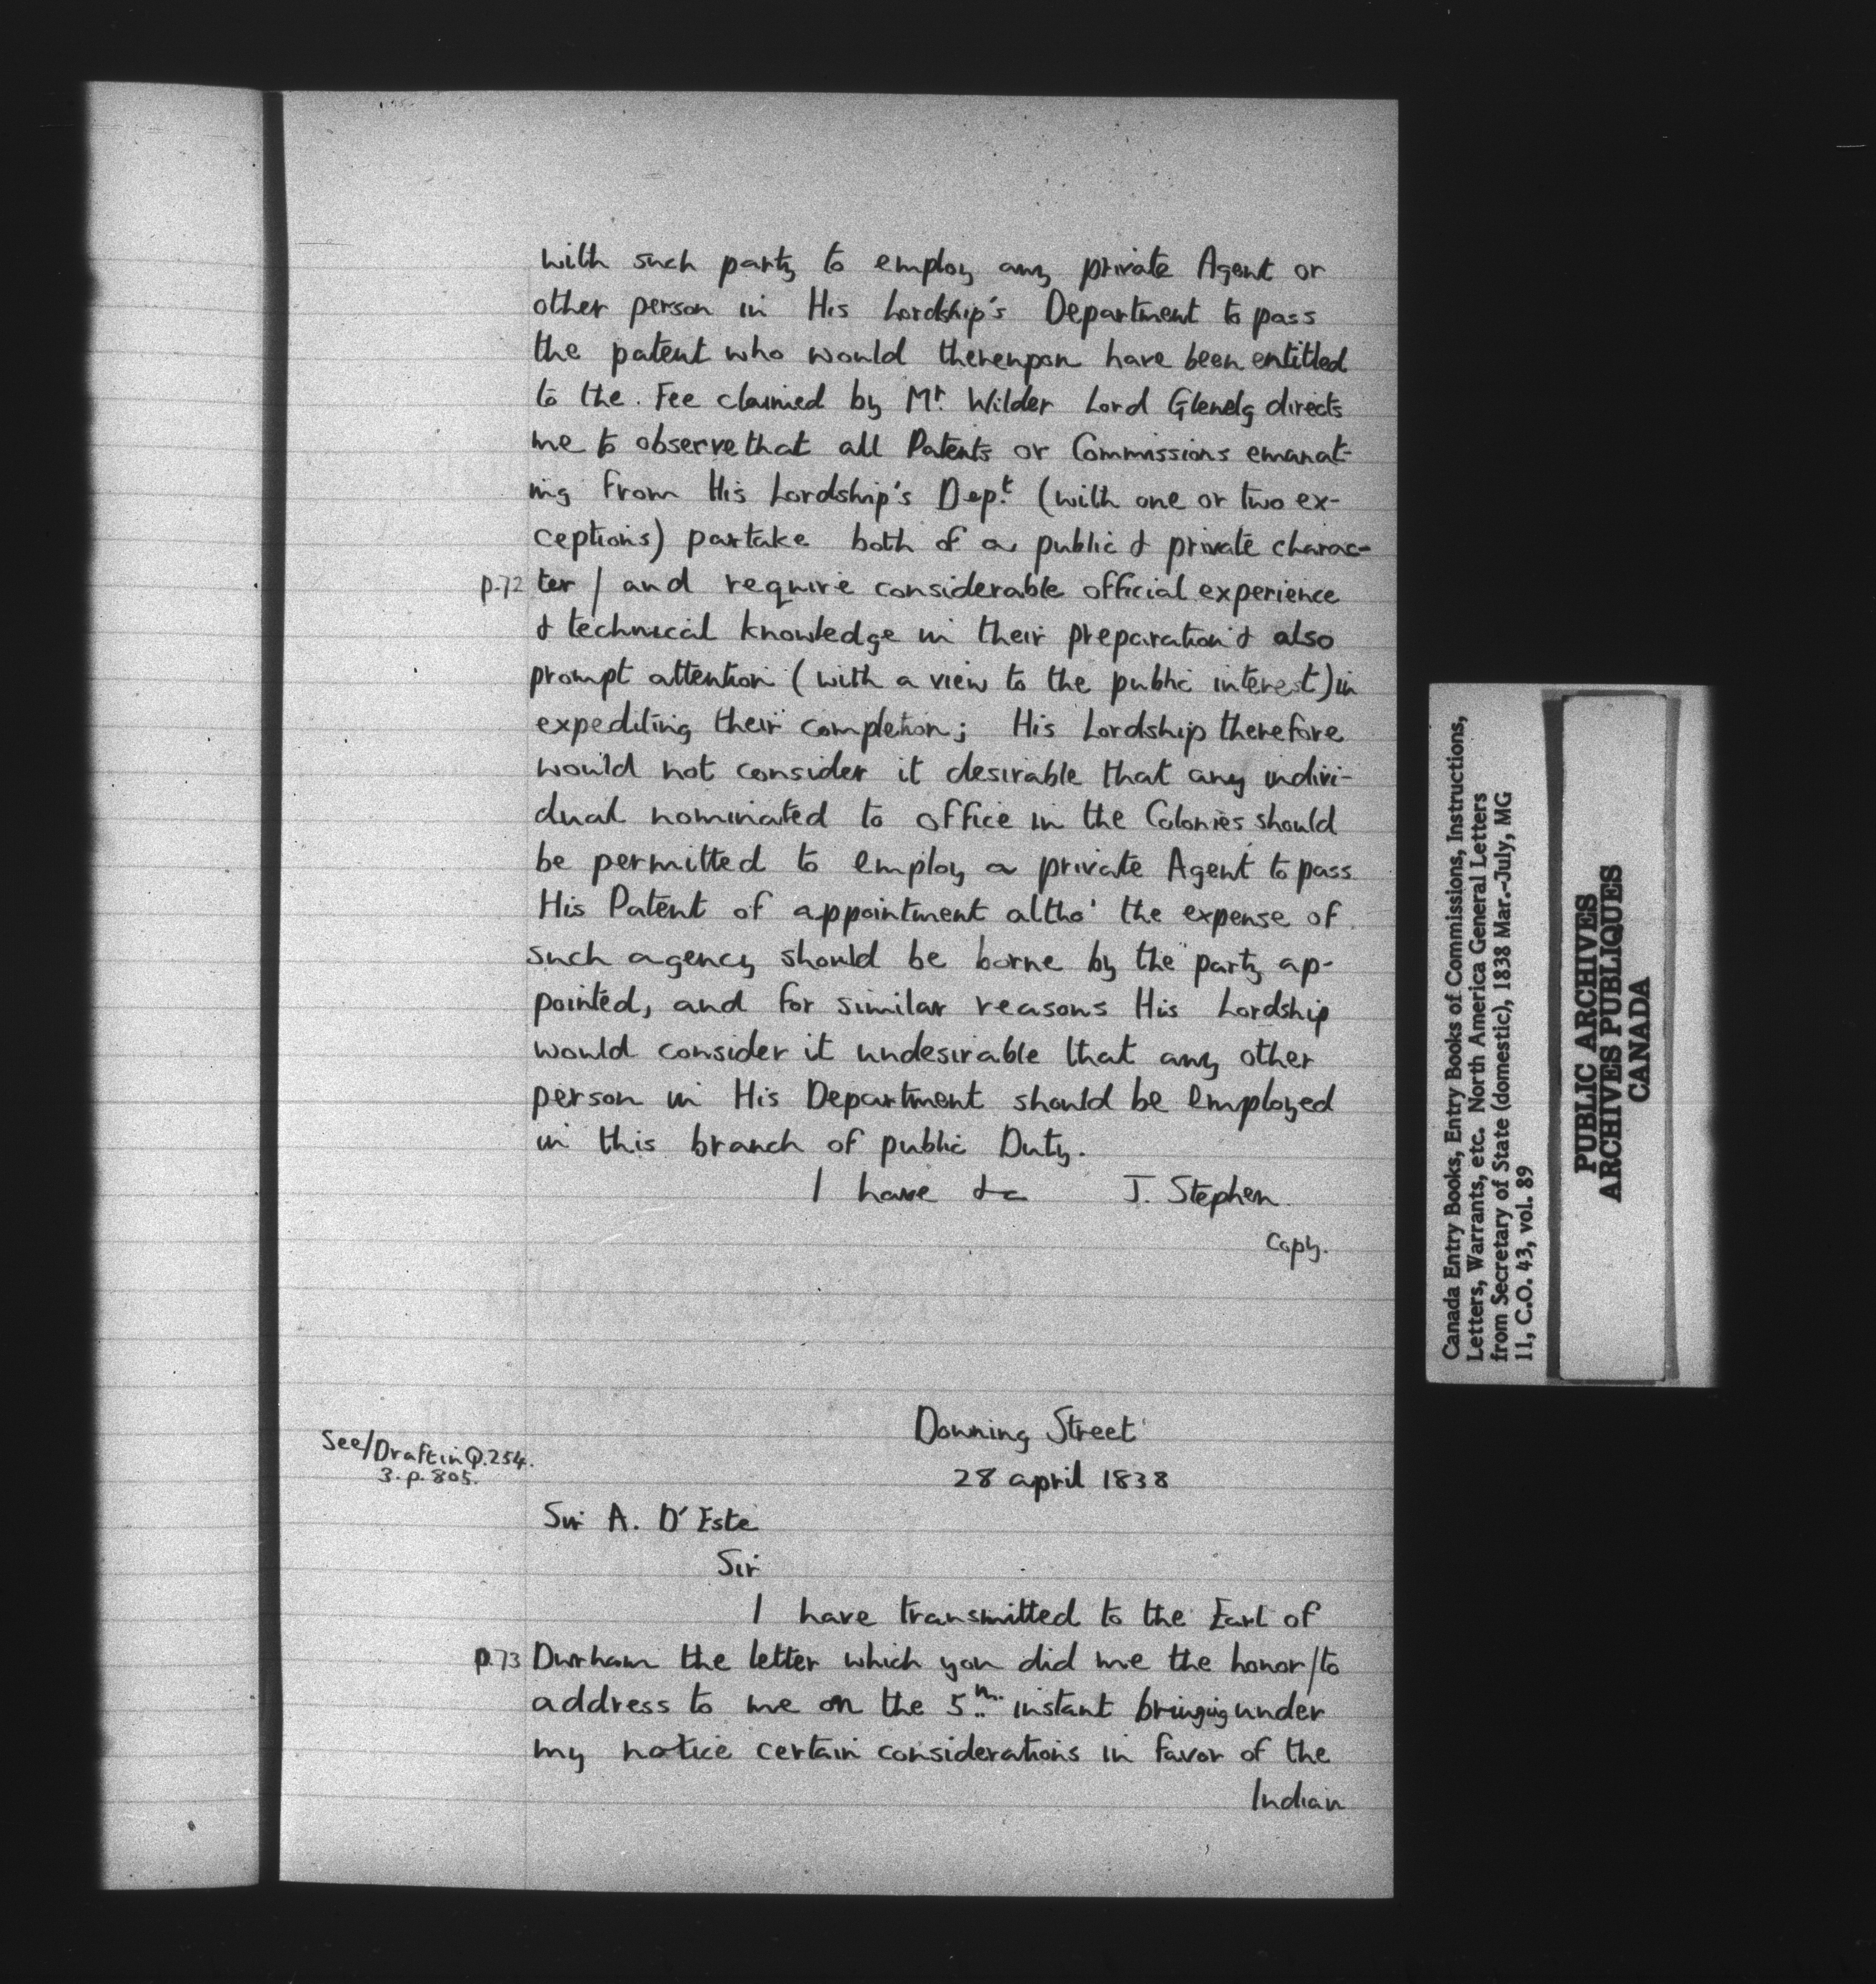 with such party to employ any private Agent or
other person in His Lordship's Department to pass
the patent who would thereupon have been entitled
to the. Fee claimed by Mr. Wilder Lord Glenelg directs
me to observe that all Patents or Commissions emanat-
ing from His Lordship's Dep.t (with one or two ex-
ceptions) partake both of a public & private charac-
p.72 ter / and require considerable official experience
& technical knowledge in their preparation & also
prompt attention (with a view to the public interest) in
expediting their completion; His Lordship therefore
would not consider it desirable that any indivi-
dual nominated to office in the Colonies should
be permitted to employ a private Agent to pass
His Patent of appointment altho' the expense of
such agency should be borne by the party ap-
pointed, and for similar reasons His Lordship
would consider it undesirable that any other
person in His Department should be employed
in this branch of public Duty.
I have &c J. Stephen
Copy.
Downing Street
28 april 1838
See/Draft in Q.254.
3. p. 805.
Sir A. D'Este
Sir
I have transmitted to the Earl of
p.73 Durham the letter which you did me the honor/to
address to me on the 5th. instant bringing under
my notice certain considerations in favor of the
Indian
Canada Entry Books, Entry Books of Commissions, Instructions,
Letters, Warrants, etc. North America General Letters
from Secretary of State (domestic), 1838 Mar.-July, MG
11, C.O. 43, vol. 89
PUBLIC ARCHIVES
ARCHIVES PUBLIQUES
CANADA